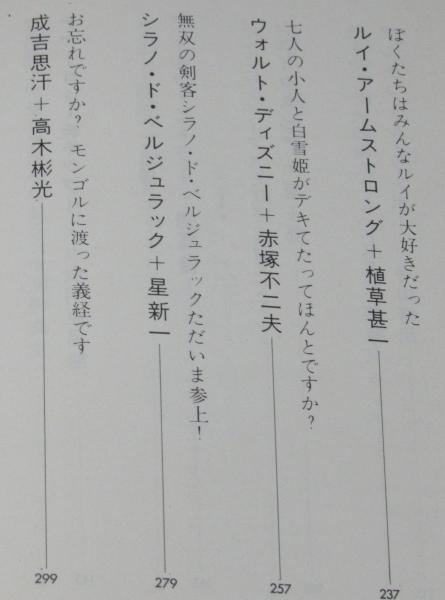 ぼくたちはみんなルイが大好きだった
ルイ・アームストロング+植草甚一
237
七人の小人と白雪姫がデキてたってほんとですか?
ウォルト・ディズニー+赤塚不二夫
257
無双の剣客シラノ・ド・ベルジュラックただいま参上!
シラノ・ド・ベルジュラック+星新一
279
お忘れですか? モンゴルに渡った義経です
成吉思汗+高木彬光
299